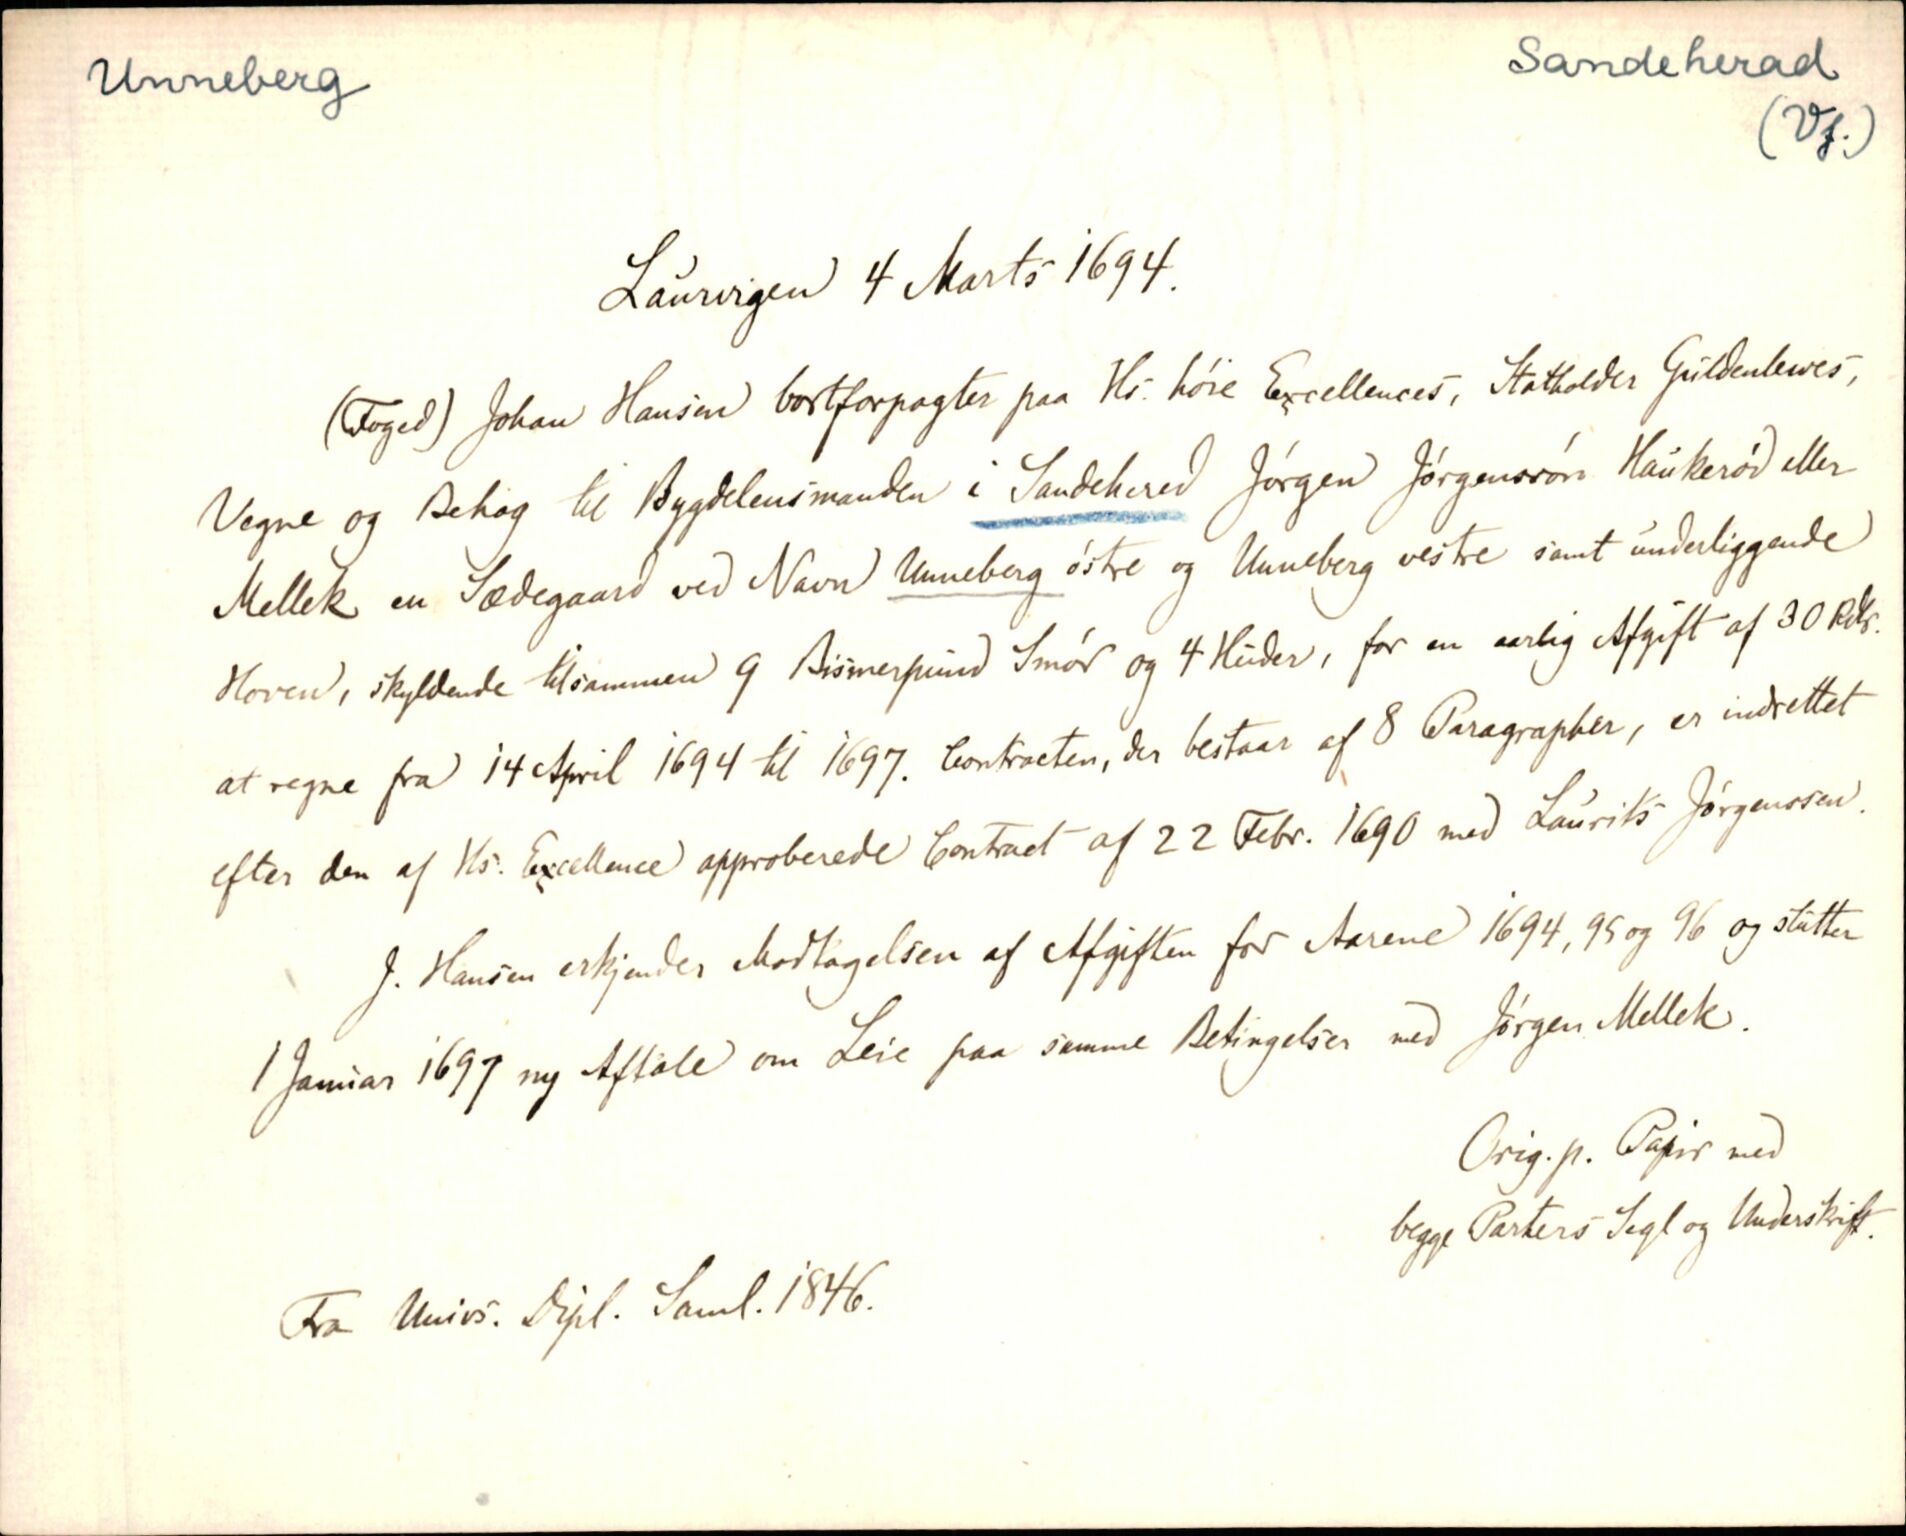 Unneberg
Sandeherad
(Vf.)
Laurvigen 4 Marts 1694.
(Foged) Johan Hansen bortforpagter paa Hs. høie Excellences, Statholder Guldenlewes,
Vegne og Behag til Bygdelensmanden i Sandehered Jørgen Jørgenssøn Haukerød eller
Mellek en Sædegaard ved Navn Unneberg østre og Unneberg vestre samt underliggende
Hoven, skyldende tilsammen 9 Bismerpund Smør og 4 Huder, for en aarlig Afgift af 30 Rdlr.
at regne fra 14 April 1694 til 1697. Contracten, der bestaar af 8 Paragrapher, er indrettet
efter den af Hs. Excellence approberede Contract af 22 Febr. 1690 med Laurits Jørgenssen.
J. Hansen erkjender Modtagelsen af Afgiften for Aarene 1694, 95 og 96 og slutter
1 Januar 1697 ny Aftale om Leie paa samme Betingelser med Jørgen Mellek.
Orig. p. Papir med
begge Parters Segl og Underskrift.
Fra Univs. Dipl. Saml. 1846.